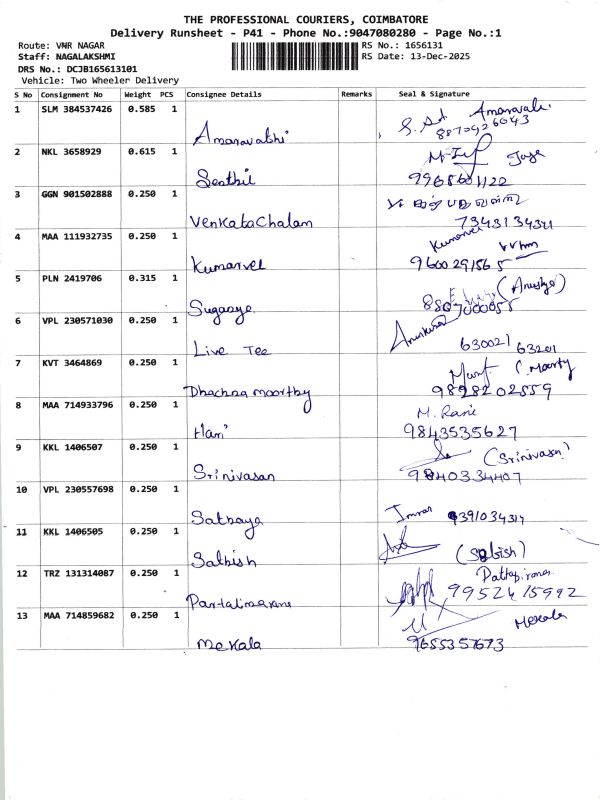 THE PROFESSIONAL COURIERS, COIMBATORE
Delivery Runsheet - P41 - Phone No.:9047080280 - Page No.:1
Route: VNR NAGAR
Staff: NAGALAKSHMI
DRS No.: DCJB165613101
Vehicle: Two Wheeler Delivery
RS No.: 1656131
RS Date: 13-Dec-2025
S No Consignment No Weight PCS Consignee Details Remarks Seal & Signature
1 SLM 384537426 0.585 1 Amaravathi
2 NKL 3658929 0.615 1 Senthil
9968601122
3 GGN 901502888 0.250 1 Venkatachalam
4 MAA 111932735 0.250 1 Kumarvel Kumarvel
5 PLN 2419706 0.315 1
6 VPL 230571030 0.250 1 Live Tee
630021 63201
7 KVT 3464869 0.250 1
9898202559
8 MAA 714933796 0.250 1 Hari M. Rani
9843535627
9 KKL 1406507 0.250 1 Srinivasan (Srinivasan)
9840334407
10 VPL 230557698 0.250 1 Imran
11 KKL 1406505 0.250 1 Sathish
12 TRZ 131314087 0.250 1
9952415992
13 MAA 714859682 0.250 1 Mekala Mekala
9655357673